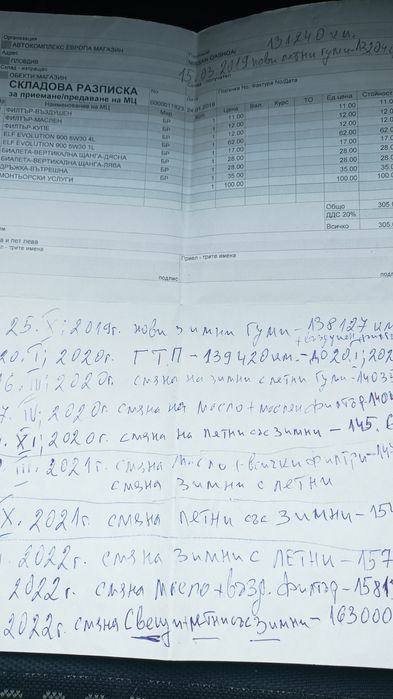 131240 км.
Организация
АВТОКОМПЛЕКС ЕВРОПА МАГАЗИН
Адрес
ПЛОВДИВ
Склад - изпращач
ОБЕКТИ МАГАЗИН
15.03.2019 нови летни гуми -
СКЛАДОВА РАЗПИСКА
за приемане/предаване на МЦ
No
0000011823
24.01.2019
Поръчка No. Фактура No/Дата
Наименование на МЦ Мяр Кол Цена Вал. Курс ТО Ед.цена Стойност
ФИЛТЪР-ВЪЗДУШЕН БР 1 11.00 11.00 11.00
ФИЛТЪР-МАСЛЕН БР 1 12.00 12.00 12.00
ФИЛТЪР-КУПЕ БР 1 12.00 12.00 12.00
ELF EVOLUTION 900 5W30 4L БР 1 62.00 62.00 62.00
ELF EVOLUTION 900 5W30 1L БР 1 17.00 17.00 17.00
БИАЛЕТА-ВЕРТИКАЛНА ЩАНГА-ДЯСНА БР 1 28.00 28.00 28.00
БИАЛЕТА-ВЕРТИКАЛНА ЩАНГА-ЛЯВА БР 1 28.00 28.00 28.00
ДРЪЖКА-ВЪТРЕШНА БР 1 35.00 35.00 35.00
МОНТЬОРСКИ УСЛУГИ БР 1 100.00 100.00 100.00
Общо 305.
ДДС 20%
Всичко 305.
а и пет лева
ел - трите имена
Приел - трите имена
подпис
подп
25.X.2019г. нови зимни гуми - 138127 км
20.I.2020г. ГТП - 139420км. - до 20.I.202
16.IV.2020г. смяна на зимни с летни гуми - 1403
7.IV.2020г. смяна на масло + маслен филтър 140
XI.2020г. смяна на летни със зимни - 145.
III.2021г. смяна масло + всички филтри - 14
смяна зимни с летни
X.2021г. смяна летни със зимни - 15
2022г. смяна зимни с летни - 157
2022г. смяна масло + възд. филтър - 1581
2022г. смяна свещи + летни със зимни - 163000